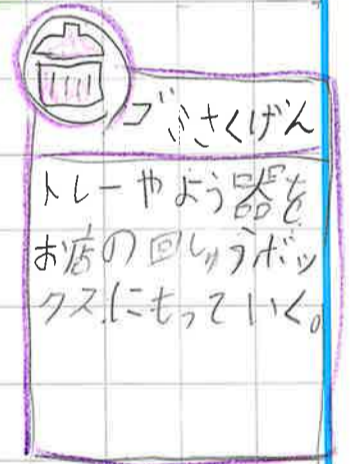 ゴミさくげん
トレーやよう器を
お店の回しゅうボッ
クスにもっていく。